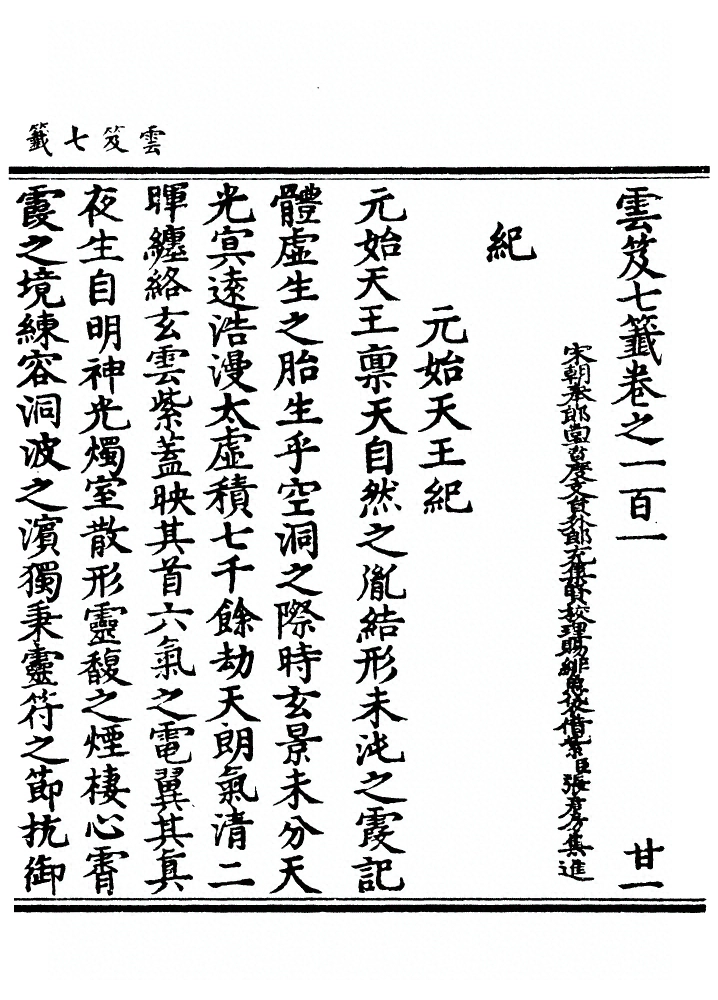 雲笈七籤
雲笈七籤卷之一百一
廿一
宋朝奉郎尚書度支員外郎充集賢校理賜緋魚袋借紫臣張君房集進
紀
元始天王紀
元始天王稟天自然之胤結形未沌之霞記
體虛生之胎生乎空洞之際時玄景未分天
光冥遠浩漫太虛積七千餘劫天朗氣清二
暉纏絡玄雲紫蓋映其首六氣之電翼其真
夜生自明神光燭室散形靈馥之煙棲心霄
霞之境練容洞波之濱獨秉靈符之節抗御